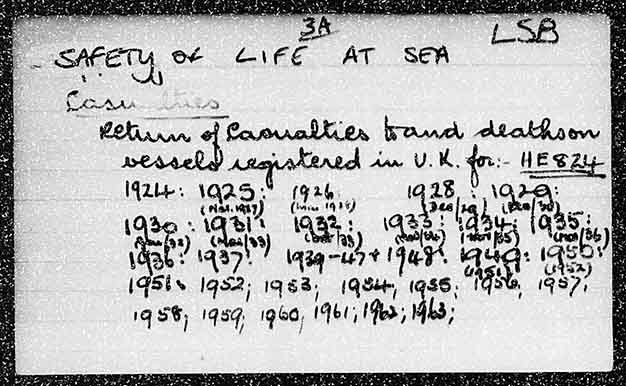 3A
LSB
SAFETY OF LIFE AT SEA
Casualties
Return of Casualties to and deaths on
vessels registered in U.K. for:- HE824
1924: 1925: 1926: 1928 : 1929:
(Nov. 1927) (Dec/29) (Dec/30)
1930: 1931: 1932: 1933: 1934: 1935:
(Nov/32) (Nov/33) (Oct/33) (Nov/35) (Nov/36)
1936: 1937: 1939-47 + 1948: 1949: 1950:
(1951) (1952)
1951; 1952; 1953; 1954; 1955; 1956; 1957;
1958; 1959; 1960; 1961; 1962; 1963;